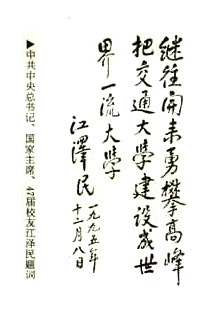 继往開来勇攀高峰
把交通大学建设成世
界一流大学
江澤民
一九九五年
十二月八日
▶中共中央总书记、国家主席、47届校友江泽民题词